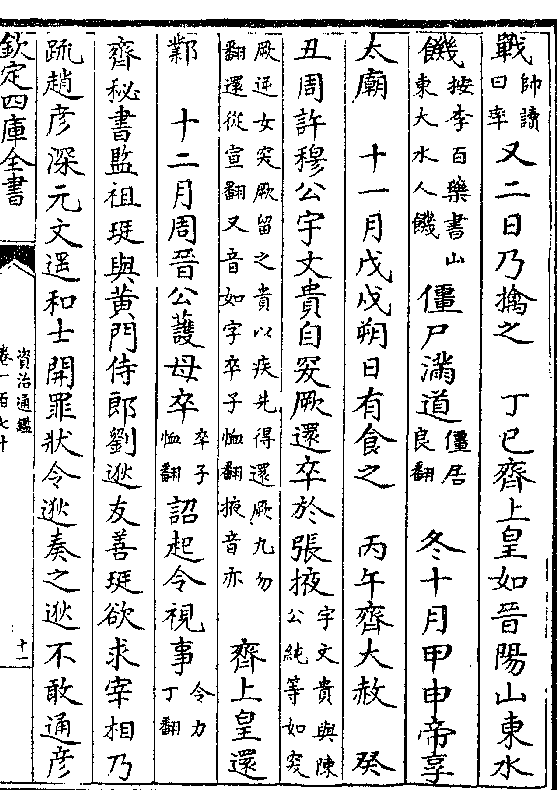 戰帥讀曰率又二日乃擒之　丁巳齊上皇如晉陽山東水
饑按李百藥書山東大水人饑僵尸滿道僵居良翻　冬十月甲申帝享
太廟　十一月戊戌朔日有食之　丙午齊大赦　癸
丑周許穆公宇文貴自突厥還卒於張掖宇文貴與陳公純等如突
厥逆女突厥留之貴以疾先得還厥九勿翻還從宣翻又音如字卒子恤翻掖音亦　齊上皇還
鄴　十二月周晉公護母卒卒子恤翻詔起令視事令力丁翻
齊秘書監祖珽與黃門侍郎劉逖友善珽欲求宰相乃
疏趙彥深元文遥和士開罪狀令逖奏之逖不敢通彥
欽定四庫全書
資治通鑑
卷一百七十